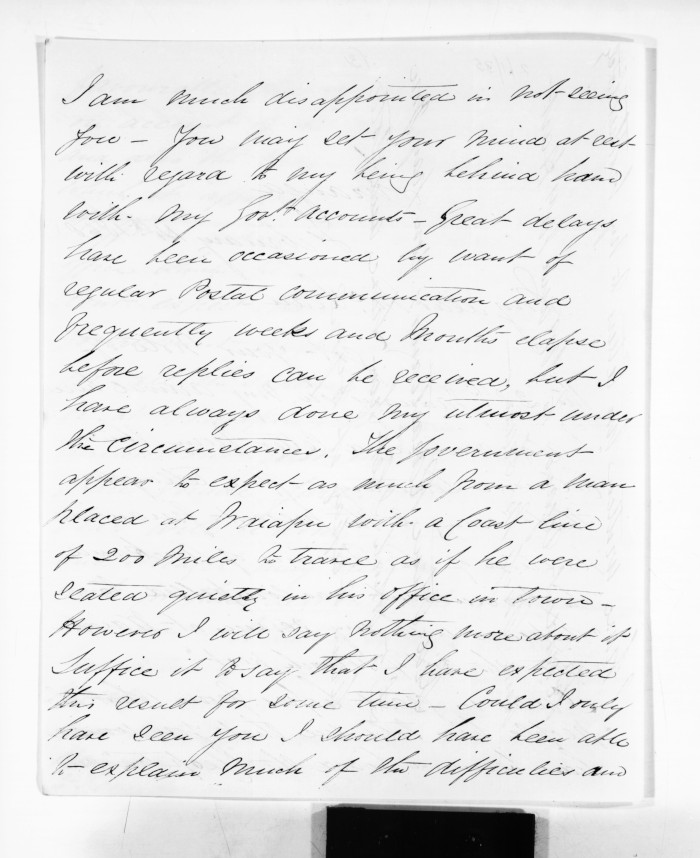 I am much disappointed in not seeing
you – You may set your mind at rest
with regard to my being behind hand
with my Govt. Accounts – Great delays
have been occasioned by want of
regular Postal communication and
frequently weeks and Months elapse
before replies can be received, but I
have always done my utmost under
the circumstances. The Government
appear to expect as much from a man
placed at Waiapu with a Coast line
of 200 miles to travel as if he were
seated quietly in his office in Town –
However I will say nothing more about it
Suffice it to say that I have expected
this result for some time – Could I only
have seen You I should have been able
to explain much of the difficulties and